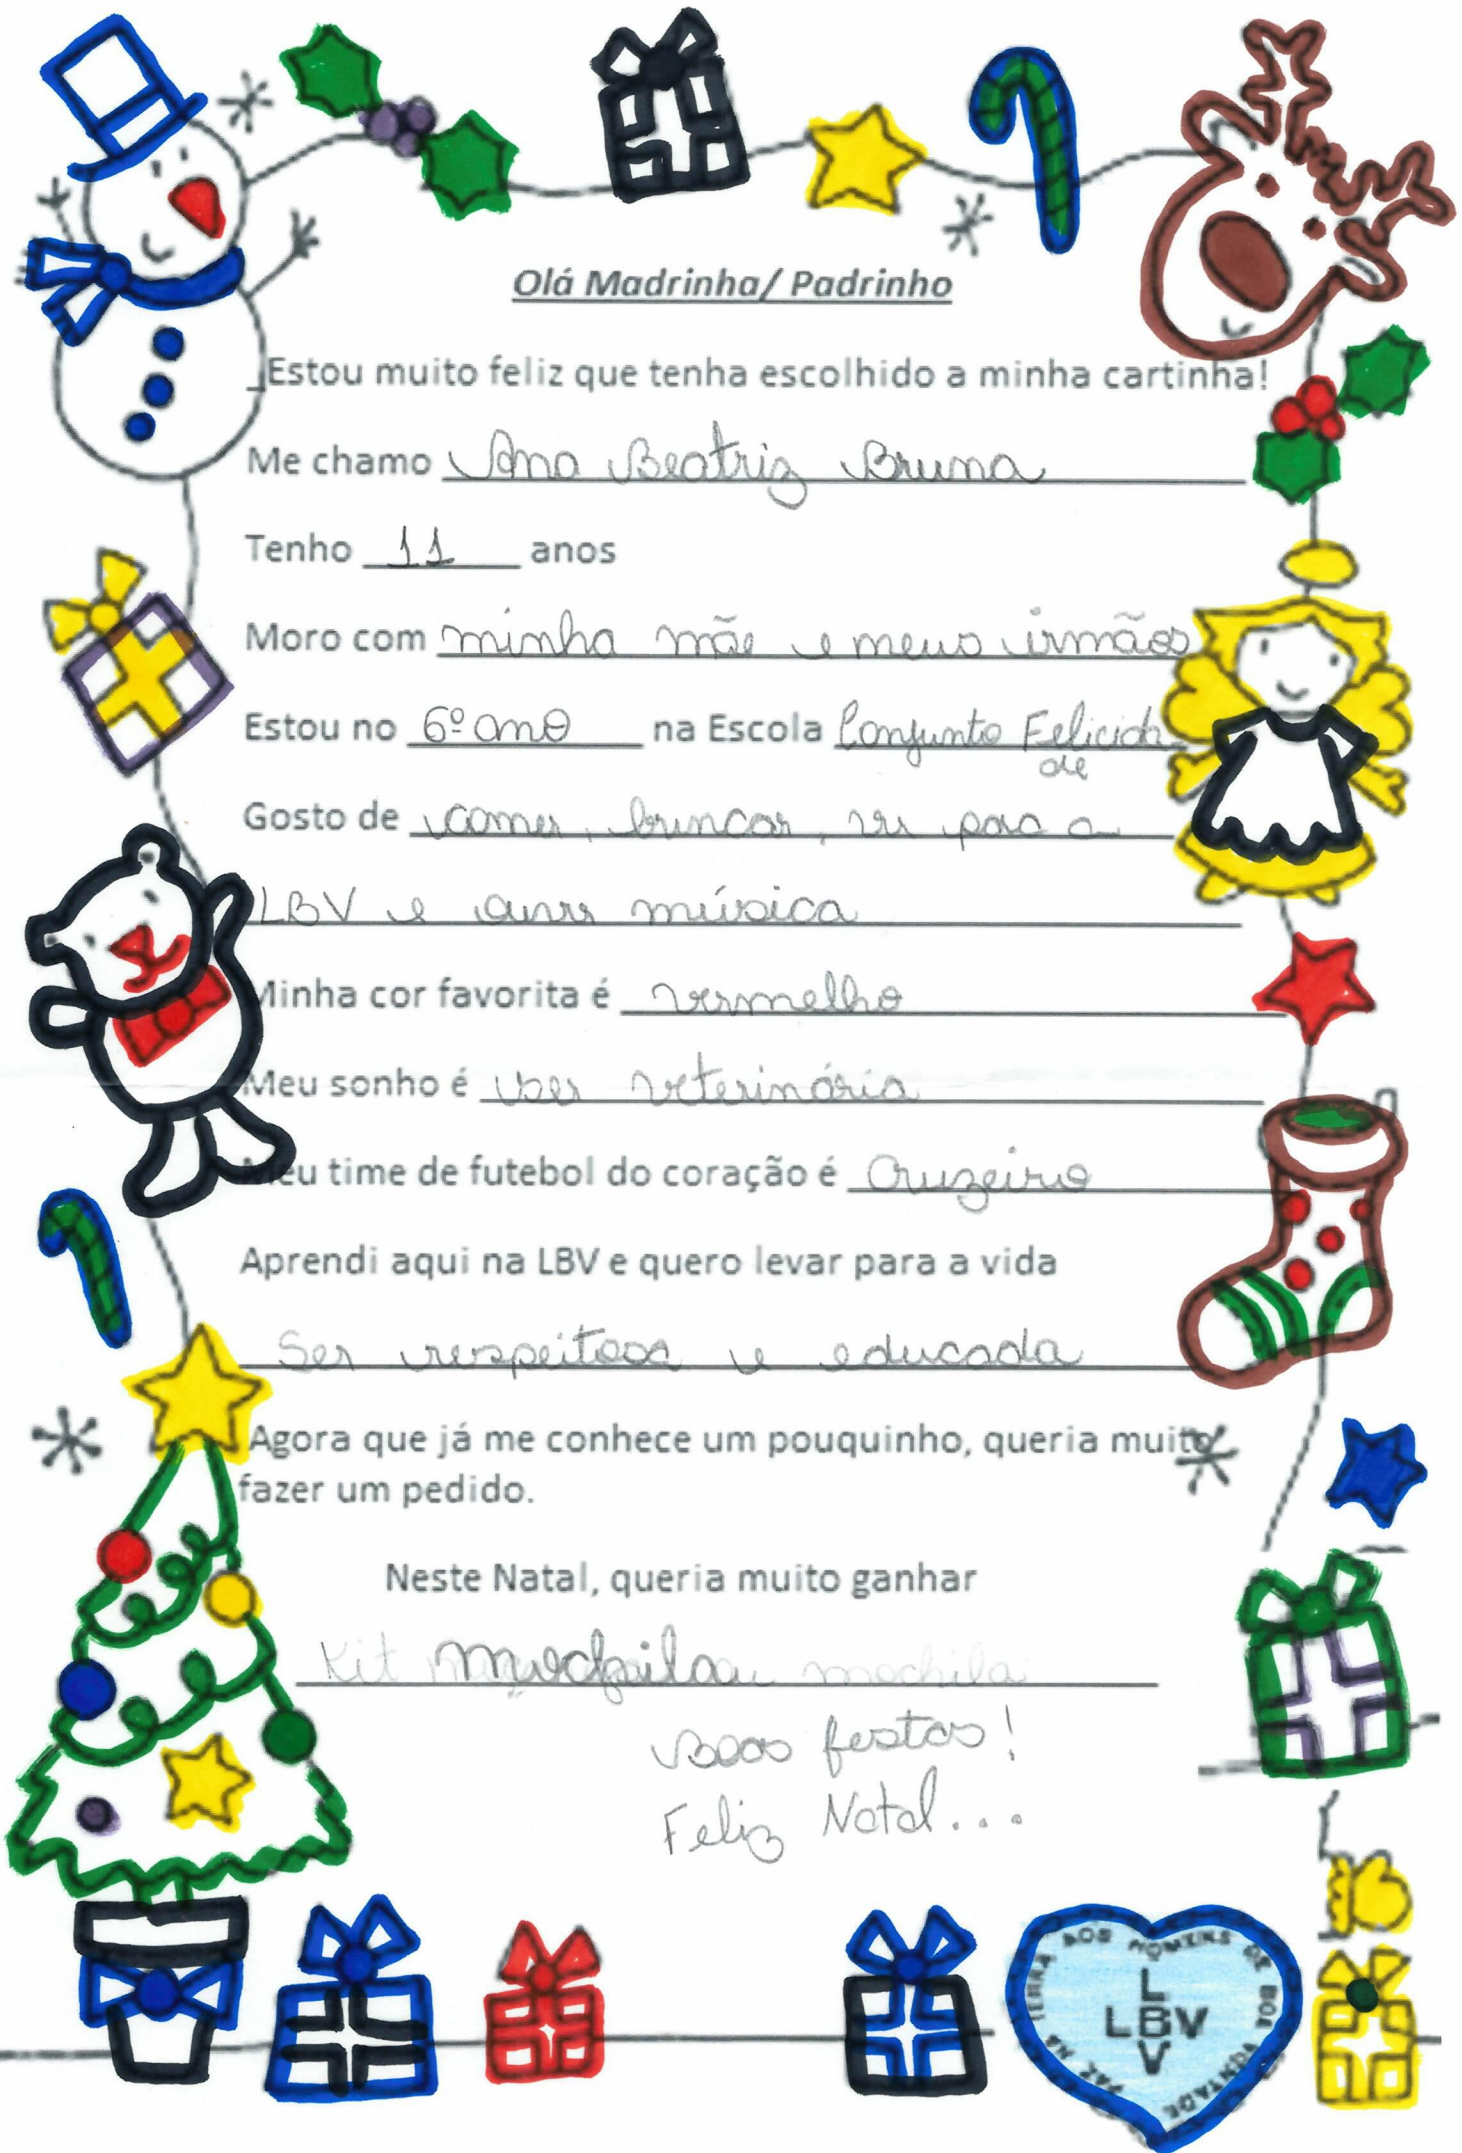 Olá Madrinha/ Padrinho
Estou muito feliz que tenha escolhido a minha cartinha!
Me chamo Ana Beatriz Bruna
Tenho 11 anos
Moro com minha mãe e meus irmãos
Estou no 6º ano na Escola Conjunto Felicida
de
Gosto de comer, brincar, ir para a
LBV e ouvir música
Minha cor favorita é vermelho
Meu sonho é ser veterinária
Meu time de futebol do coração é Cruzeiro
Aprendi aqui na LBV e quero levar para a vida
Ser respeitosa e educada
Agora que já me conhece um pouquinho, queria muito
fazer um pedido.
Neste Natal, queria muito ganhar
Kit mochila mochila
Boas festas!
Feliz Natal...
L
LBV
V
PAZ NA TERRA AOS HOMENS DE BOA VONTADE